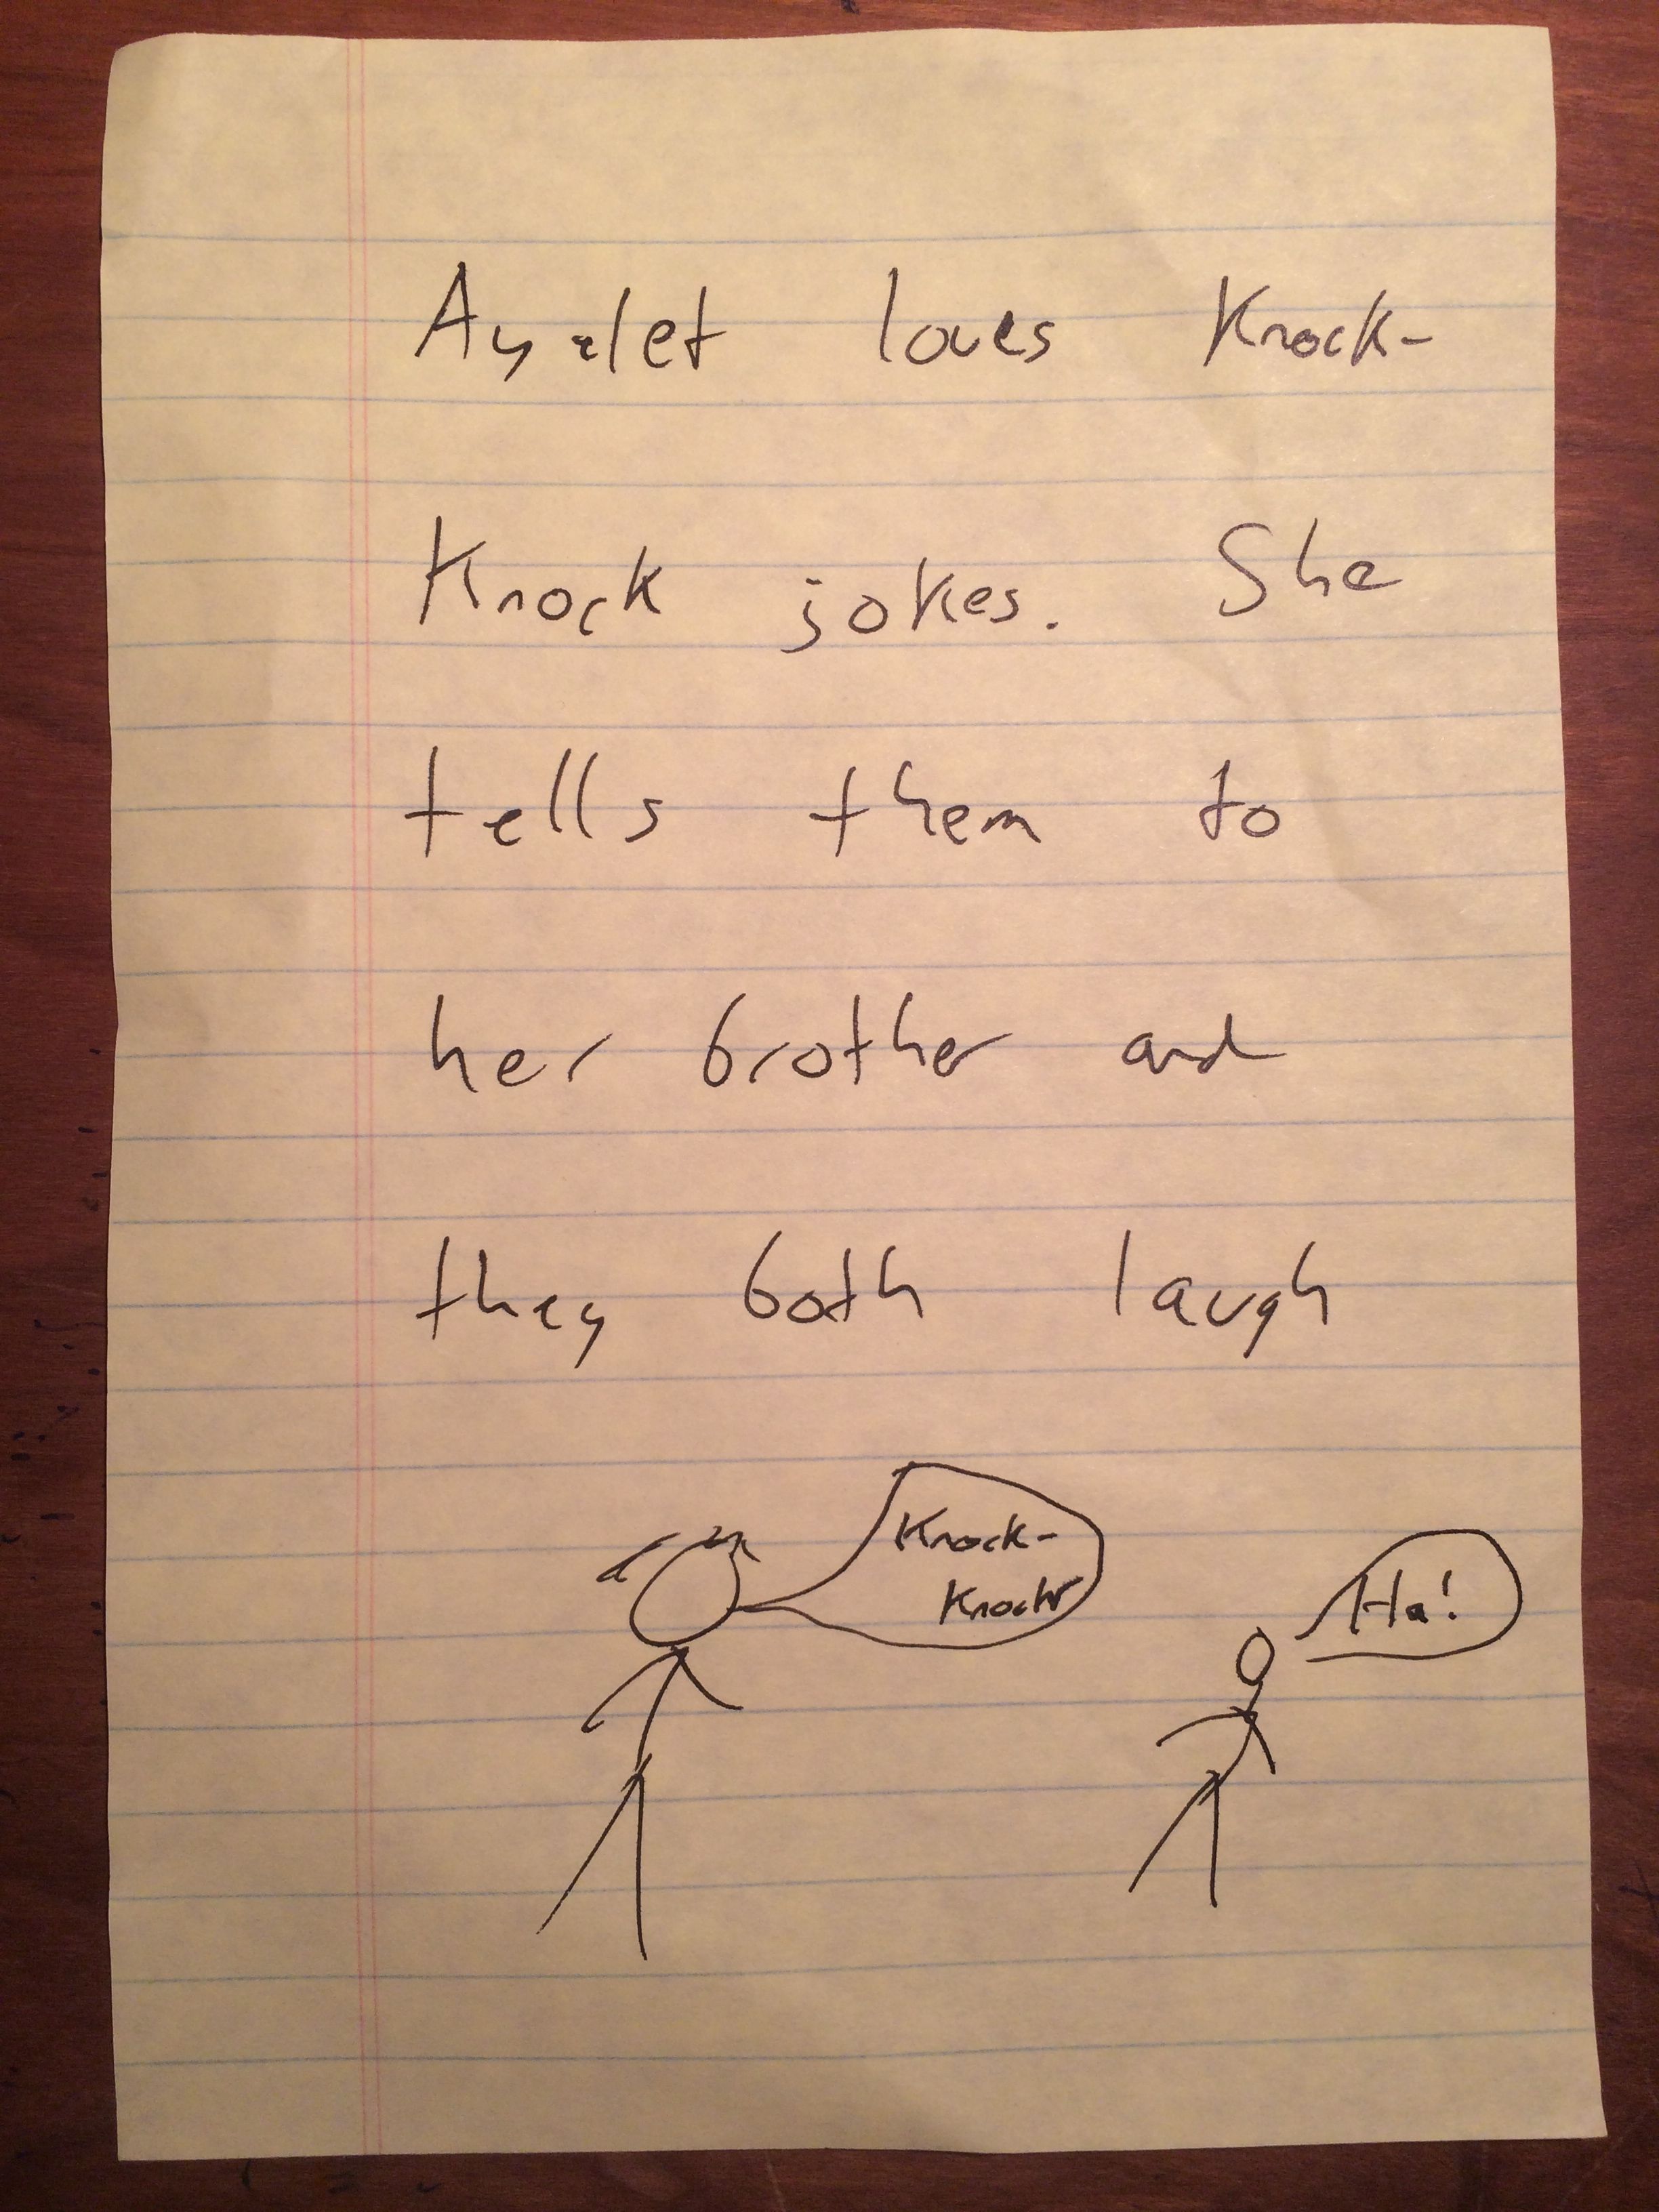 Ayalet loves Knock-
Knock jokes. She
tells them to
her brother and
they both laugh
Knock-
Knock
Ha!